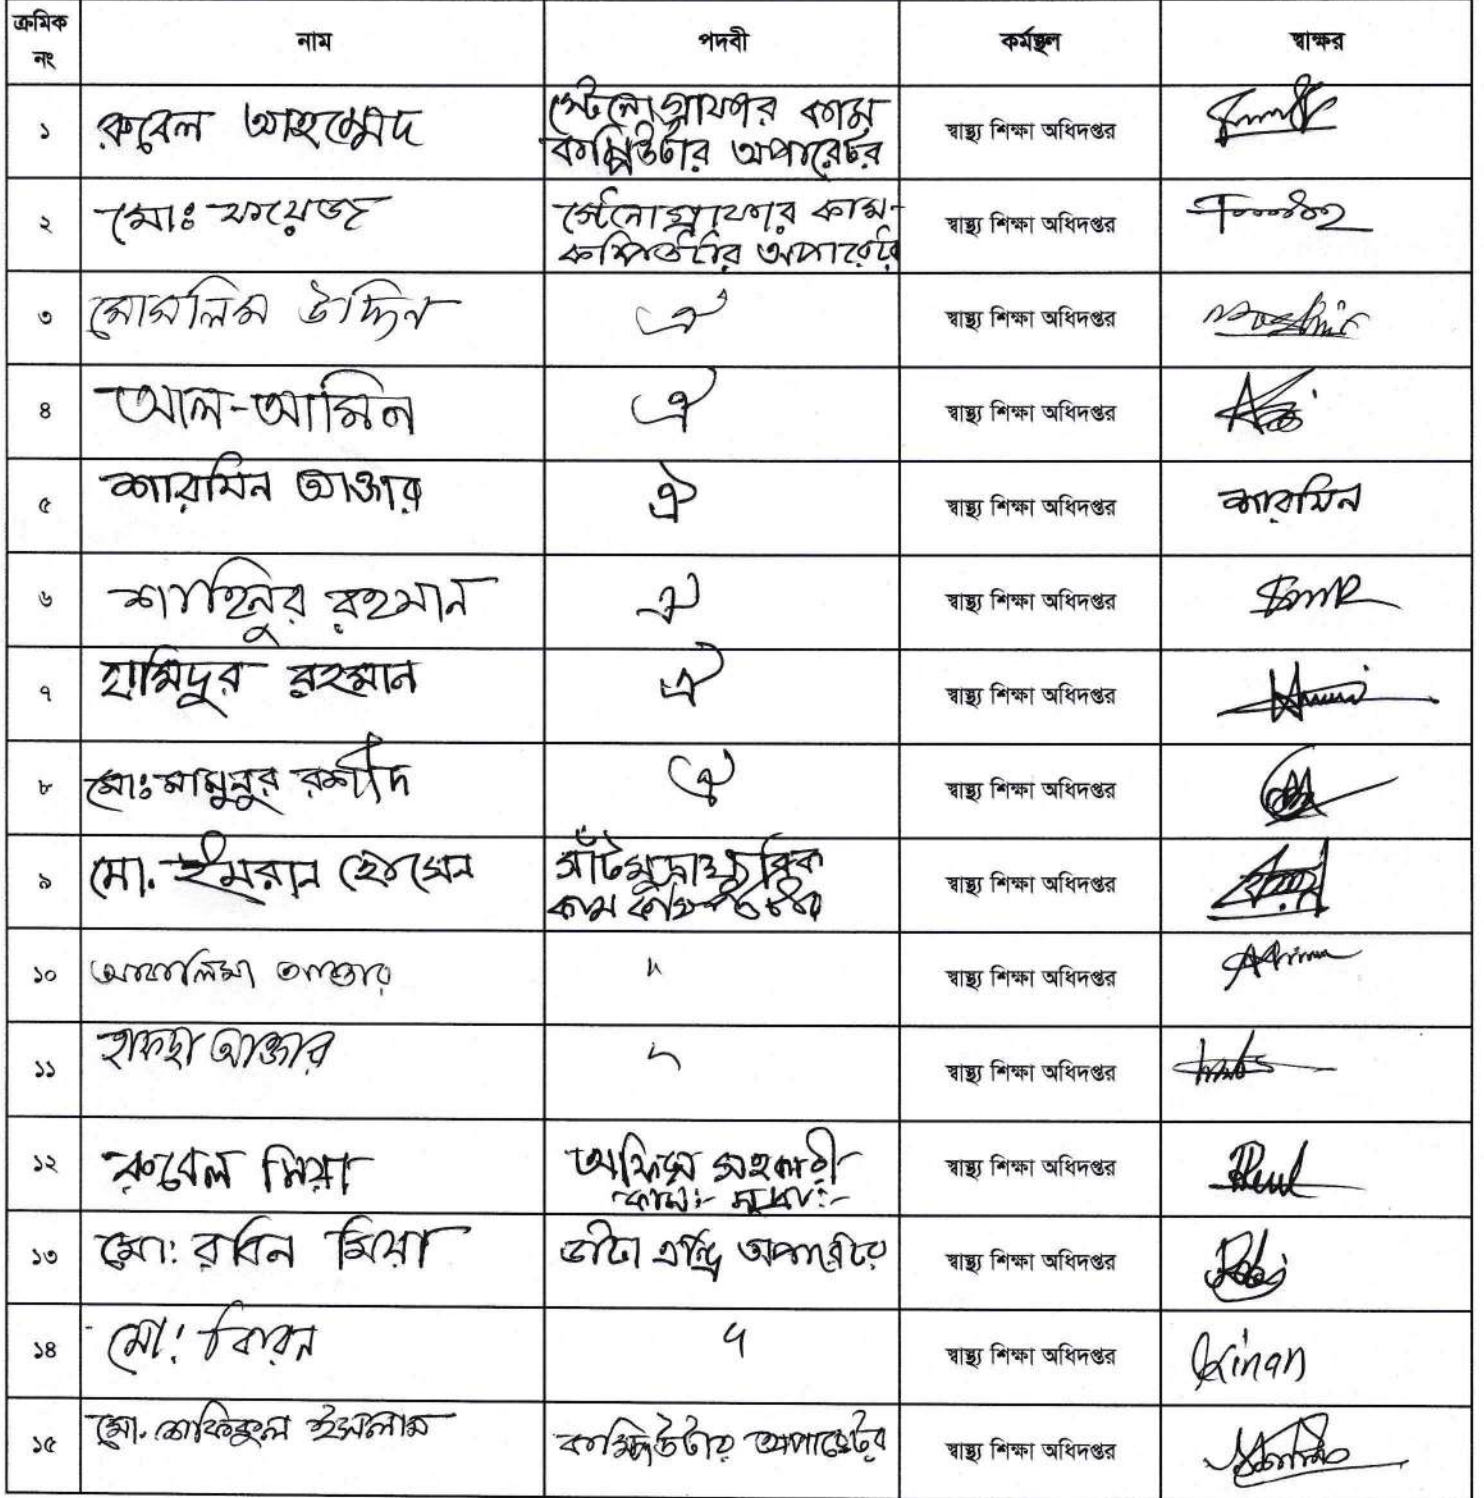 ক্রমিক নং নাম পদবী কর্মস্থল স্বাক্ষর
১ রুবেল আহম্মেদ স্টেনোগ্রাফার কাম কম্পিউটার অপারেটর স্বাস্থ্য শিক্ষা অধিদপ্তর
২ মোঃ ফয়েজ স্টেনোগ্রাফার কাম- কম্পিউটার অপারেটর স্বাস্থ্য শিক্ষা অধিদপ্তর
৩ মোসলিম উদ্দিন ঐ স্বাস্থ্য শিক্ষা অধিদপ্তর
৪ আল-আমিন ঐ স্বাস্থ্য শিক্ষা অধিদপ্তর
৫ শারমিন আক্তার ঐ স্বাস্থ্য শিক্ষা অধিদপ্তর শারমিন
৬ শাহিনুর রহমান ঐ স্বাস্থ্য শিক্ষা অধিদপ্তর
৭ হামিদুর রহমান ঐ স্বাস্থ্য শিক্ষা অধিদপ্তর
৮ মোঃ মামুনুর রশীদ ঐ স্বাস্থ্য শিক্ষা অধিদপ্তর
৯ মো. ইমরান হোসেন কাম স্বাস্থ্য শিক্ষা অধিদপ্তর
১০ আক্তার " স্বাস্থ্য শিক্ষা অধিদপ্তর
১১ হাফছা আক্তার " স্বাস্থ্য শিক্ষা অধিদপ্তর
১২ রুবেল মিয়া অফিস সহকারী কাম:- মুদ্রা:- স্বাস্থ্য শিক্ষা অধিদপ্তর
১৩ মো: রবিন মিয়া ডাটা এন্ট্রি অপারেটর স্বাস্থ্য শিক্ষা অধিদপ্তর
১৪ মো: কিরন " স্বাস্থ্য শিক্ষা অধিদপ্তর Kiran
১৫ মো. শফিকুল ইসলাম কম্পিউটার অপারেটর স্বাস্থ্য শিক্ষা অধিদপ্তর